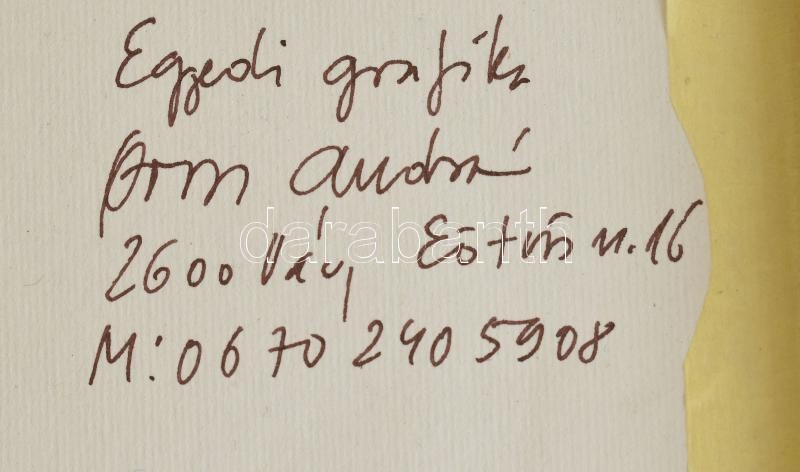 Egyedi grafika
András
2600 Vác, Eötvös u. 16
M: 06 70 240 5908
darabanth